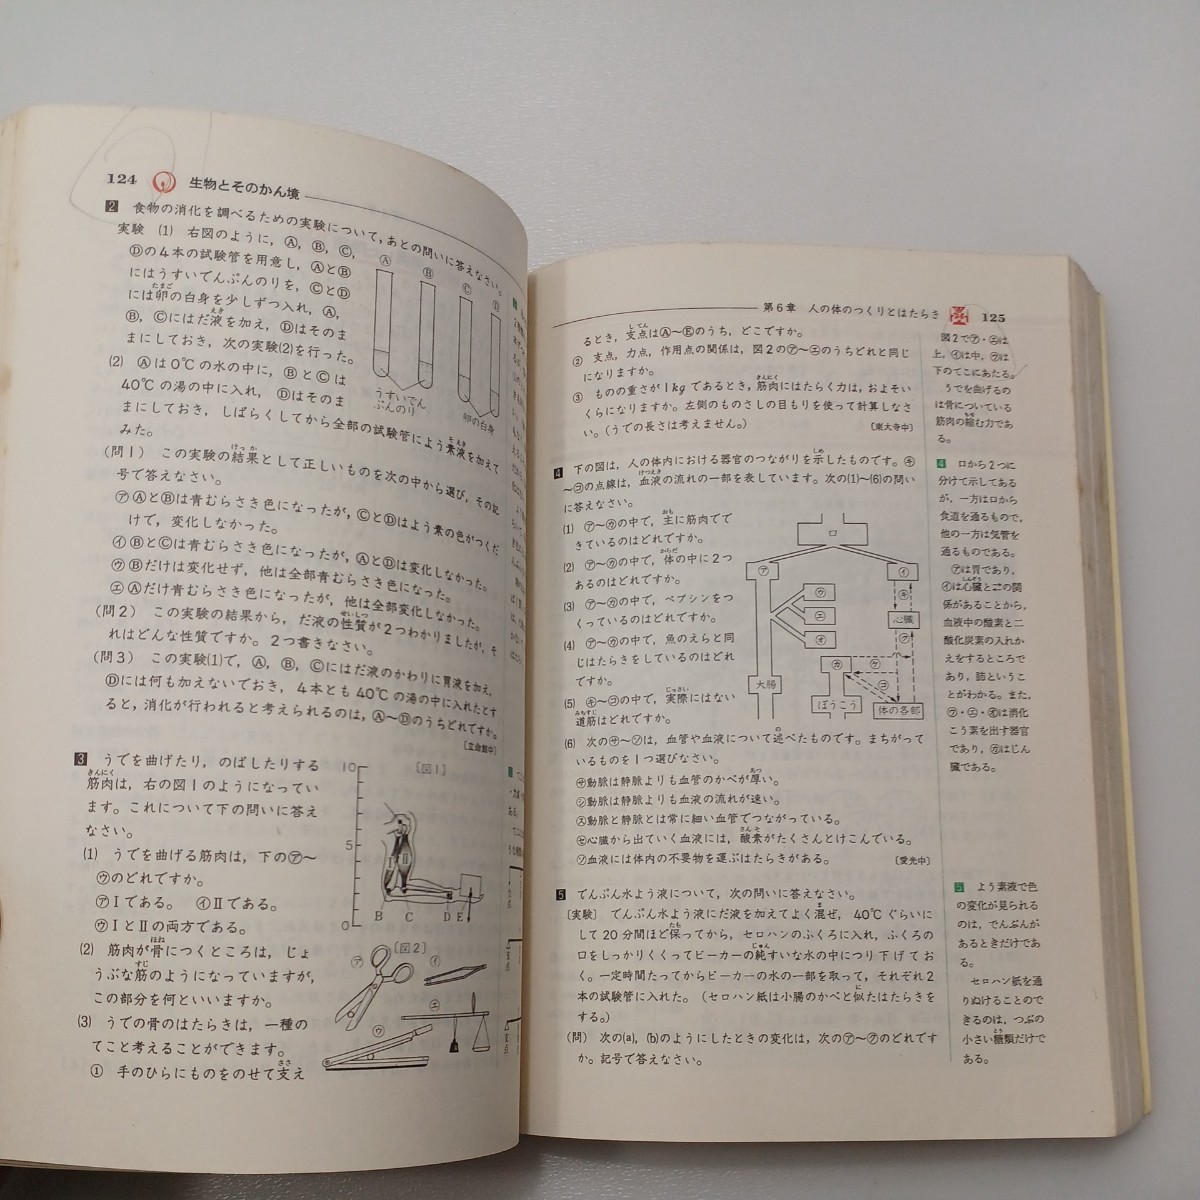 124 生物とそのかん境
2 食物の消化を調べるための実験について,あとの問いに答えなさい。
実験 (1) 右図のように,Ⓐ,Ⓑ,Ⓒ,
Ⓓの4本の試験管を用意し,ⒶとⒷ
にはうすいでんぷんのりを,ⒸとⒹ
には卵の白身を少しずつ入れ,Ⓐ,
Ⓑ,Ⓒにはだ液を加え,Ⓓはそのま
まにしておき,次の実験(2)を行った。
(2) Ⓐは0℃の水の中に,ⒷとⒸは
40℃の湯の中に入れ,Ⓓはそのま
まにしておき,しばらくしてから全部の試験管によう素液を加えて
みた。
Ⓐ Ⓑ Ⓒ Ⓓ
うすいでん
ぷんのり
卵の白身
(問1) この実験の結果として正しいものを次の中から選び,その記
号で答えなさい。
㋐ ⒶとⒷは青むらさき色になったが,ⒸとⒹはよう素の色がつくだ
けで,変化しなかった。
㋑ ⒷとⒸは青むらさき色になったが,ⒶとⒹは変化しなかった。
㋒ Ⓑだけは変化せず,他は全部青むらさき色になった。
㋓ Ⓐだけ青むらさき色になったが,他は全部変化しなかった。
(問2) この実験の結果から,だ液の性質が2つわかりましたが,そ
れはどんな性質ですか。2つ書きなさい。
(問3) この実験(1)で,Ⓐ,Ⓑ,Ⓒにはだ液のかわりに胃液を加え,
Ⓓには何も加えないでおき,4本とも40℃の湯の中に入れたとす
ると,消化が行われると考えられるのは,Ⓐ~Ⓓのうちどれですか。
〔立命館中〕
3 うでを曲げたり,のばしたりする
筋肉は,右の図1のようになってい
ます。これについて下の問いに答え
なさい。
(1) うでを曲げる筋肉は,下の㋐~
㋒のどれですか。
㋐ Ⅰである。 ㋑ Ⅱである。
㋒ ⅠとⅡの両方である。
(2) 筋肉が骨につくところは,じょ
うぶな筋のようになっていますが,
この部分を何といいますか。
(3) うでの骨のはたらきは,一種の
てこと考えることができます。
① 手のひらにものをのせて支え
〔図1〕
10
5
0
Ⅰ Ⅱ
B C D E
〔図2〕
㋐ ㋑ ㋒ ㋓
第6章 人の体のつくりとはたらき 125
るとき,支点はⒶ~Ⓔのうち,どこですか。
② 支点,力点,作用点の関係は,図2の㋐~㋓のうちどれと同じ
になりますか。
③ ものの重さが1kgであるとき,筋肉にはたらく力は,およそい
くらになりますか。左側のものさしの目もりを使って計算しなさ
い。(うでの長さは考えません。) 〔東大寺中〕
4 下の図は,人の体内における器官のつながりを示したものです。㋖
~㋙の点線は,血液の流れの一部を表しています。次の(1)~(6)の問い
に答えなさい。
(1) ㋐~㋕の中で,主に筋肉でで
きているのはどれですか。
(2) ㋐~㋕の中で,体の中に2つ
あるのはどれですか。
(3) ㋐~㋕の中で,ペプシンをつ
くっているのはどれですか。
(4) ㋐~㋕の中で,魚のえらと同
じはたらきをしているのはどれ
ですか。
(5) ㋖~㋙の中で,実際にはない
道筋はどれですか。
(6) 次の㋚~㋞は,血管や血液について述べたものです。まちがって
いるものを1つ選びなさい。
㋚ 動脈は静脈よりも血管のかべが厚い。
㋛ 動脈は静脈よりも血液の流れが速い。
㋜ 動脈と静脈とは常に細い血管でつながっている。
㋝ 心臓から出ていく血液には,酸素がたくさんとけこんでいる。
㋞ 血液には体内の不要物を運ぶはたらきがある。 〔愛光中〕
口
㋐ ㋑
㋒ ㋖
㋓ 心臓
㋔ ㋗
㋕ ㋘
㋙
大腸 ぼうこう 体の各部
5 でんぷん水よう液について,次の問いに答えなさい。
〔実験〕 でんぷん水よう液にだ液を加えてよく混ぜ,40℃ぐらいに
して20分間ほど保ってから,セロハンのふくろに入れ,ふくろの
口をしっかりくくってビーカーの純すいな水の中につり下げてお
く。一定時間たってからビーカーの水の一部を取って,それぞれ2
本の試験管に入れた。(セロハン紙は小腸のかべと似たはたらきを
する。)
(問) 次の(a),(b)のようにしたときの変化は,次の㋐~㋗のどれです
か。記号で答えなさい。
図2で㋐・㋓は
上,㋑は中,㋒は
下のてこにあたる。
うでを曲げるの
は骨についている
筋肉の縮む力であ
る。
4 口から2つに
分けて示してある
が,一方は口から
食道を通るもので,
他の一方は気管を
通るものである。
㋐は胃であり,
㋑は心臓と二つの関
係があることから,
血液中の酸素と二
酸化炭素の入れか
えをするところで
あり,肺というこ
とがわかる。また,
㋒・㋓・㋔は消化
こう素を出す器官
であり,㋕はじん
臓である。
5 よう素液で色
の変化が見られる
のは,でんぷんが
あるときだけであ
る。
セロハン紙を通
りぬけることので
きるのは,つぶの
小さい糖類だけで
ある。